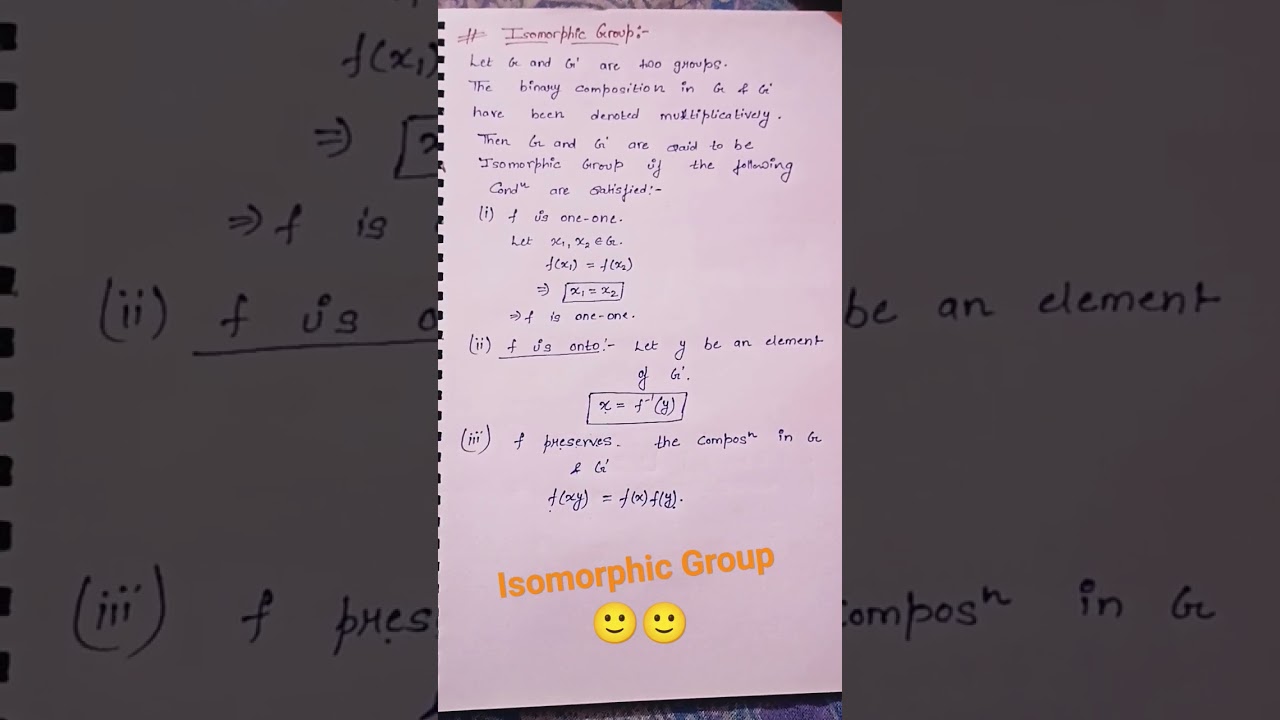 # Isomorphic Group:-
Let G and G' are two groups.
The binary composition in G & G'
have been denoted multiplicatively.
Then G and G' are said to be
Isomorphic Group if the following
Condⁿ are satisfied:-
(i) f is one-one.
Let x₁, x₂ ∈ G.
f(x₁) = f(x₂)
⇒ x₁ = x₂
⇒ f is one-one.
(ii) f is onto:- Let y be an element
of G'.
x = f⁻¹(y)
(iii) f preserves. the composⁿ in G
& G'
f(xy) = f(x) f(y).
Isomorphic Group
🙂🙂
f(x₁)
⇒ x
⇒ f is
(ii) f is o
be an element
(iii) f pres
composⁿ in G